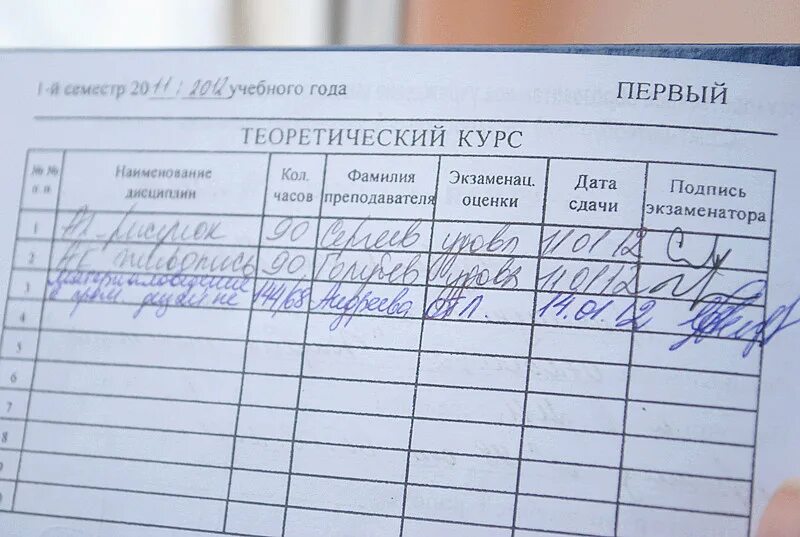 1-й семестр 2011/2012 учебного года ПЕРВЫЙ
ТЕОРЕТИЧЕСКИЙ КУРС
№№ п п Наименование дисциплин Кол. часов Фамилия преподавателя Экзаменац. оценки Дата сдачи Подпись экзаменатора
1 рисунок 90 Сергеев 11 01 12
2 живопись 90 Голубев 11 01 12
3 материаловедение
в дизайне 144/68 Андреева отл. 14.01.12
4
5
6
7
8